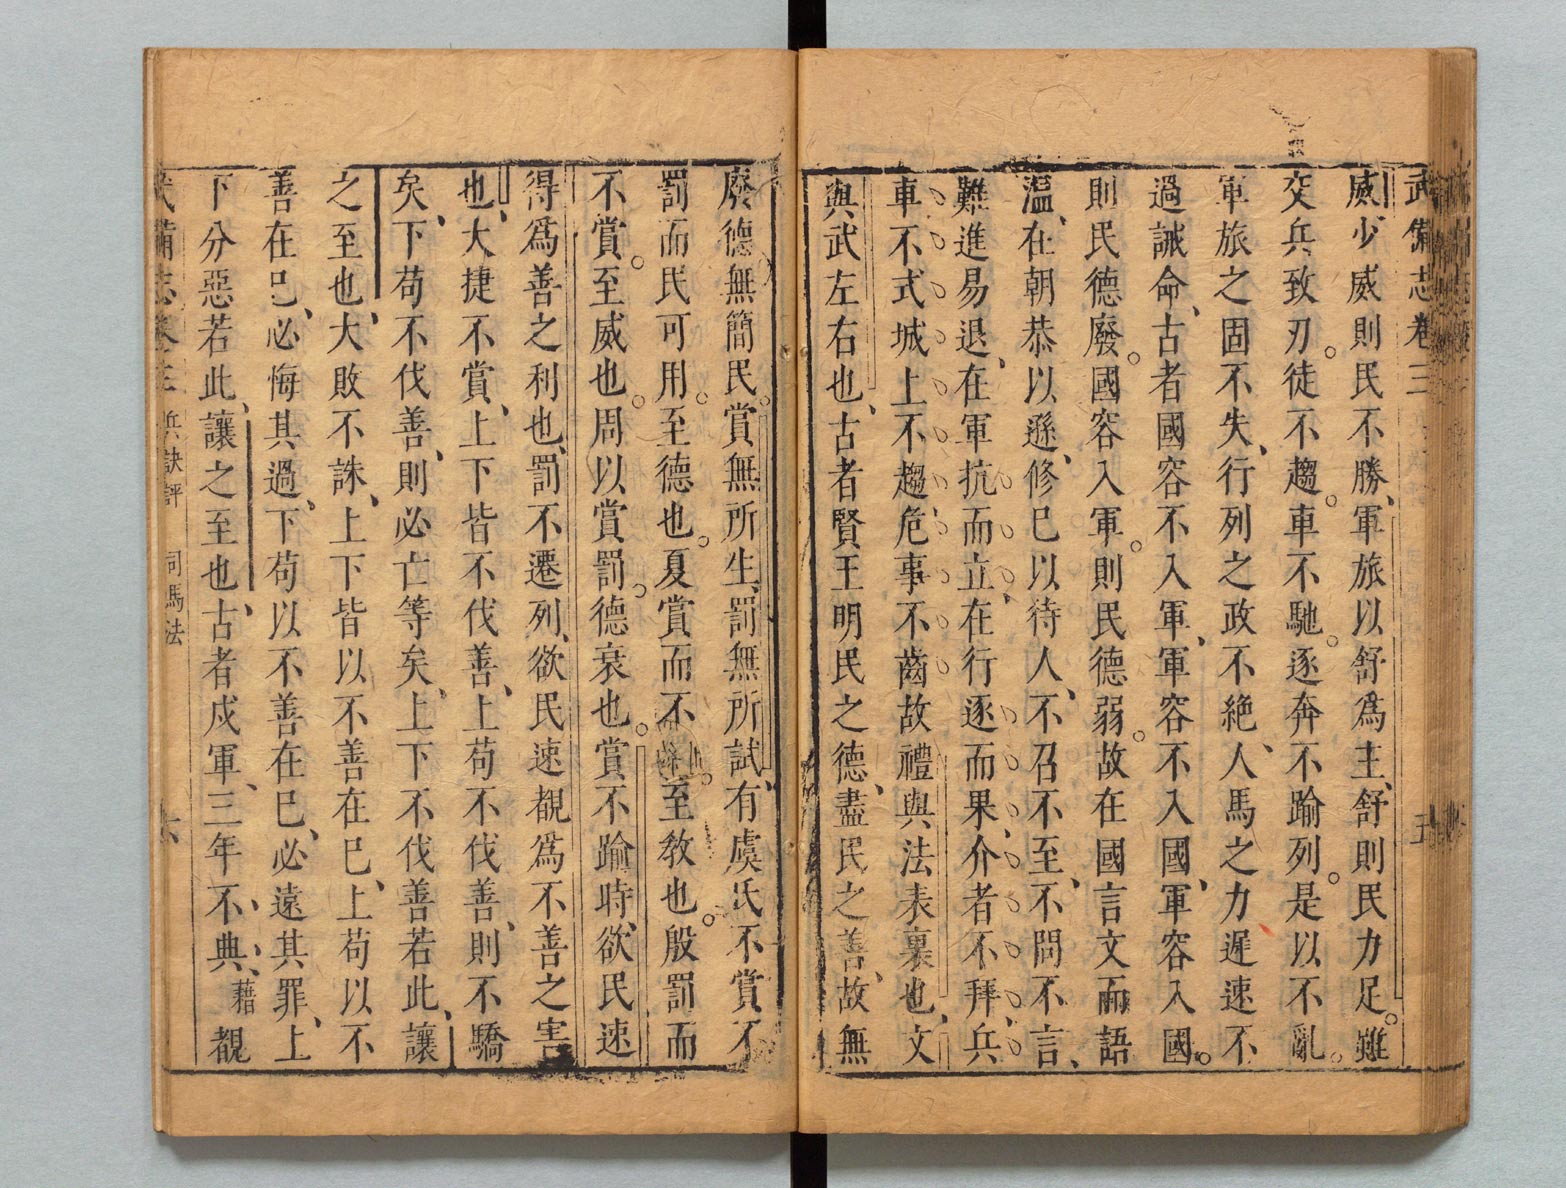 武備志卷三
威少威則民不勝軍旅以舒爲主舒則民力足雖
交兵致刃徒不趨車不馳逐奔不踰列是以不亂
軍旅之固不失行列之政不絶人馬之力遲速不
過誡命古者國容不入軍軍容不入國軍容入國
則民德廢國容入軍則民德弱故在國言文而語
溫在朝恭以遜修己以待人不召不至不問不言
難進易退在軍抗而立在行逐而果介者不拜兵
車不式城上不趨危事不齒故禮與法表裏也文
與武左右也古者賢王明民之德盡民之善故無
廢德無簡民賞無所生罰無所試有虞氏不賞不
罰而民可用至德也夏賞而不罰至教也殷罰而
不賞至威也周以賞罰德衰也賞不踰時欲民速
得爲善之利也罰不遷列欲民速覩爲不善之害
也大捷不賞上下皆不伐善上苟不伐善則不驕
矣下苟不伐善則必亡等矣上下不伐善若此讓
之至也大敗不誅上下皆以不善在己上苟以不
善在己必悔其過下苟以不善在己必遠其罪上
下分惡若此讓之至也古者戍軍三年不典藉覩
武備志卷三 兵訣評 司馬法 六